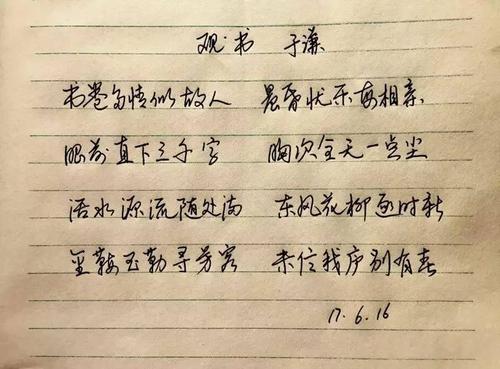 观书 于谦
书卷多情似故人 晨昏忧乐每相亲
眼前直下三千字 胸次全无一点尘
活水源流随处满 东风花柳逐时新
金鞍玉勒寻芳客 未信我庐别有春
17.6.16